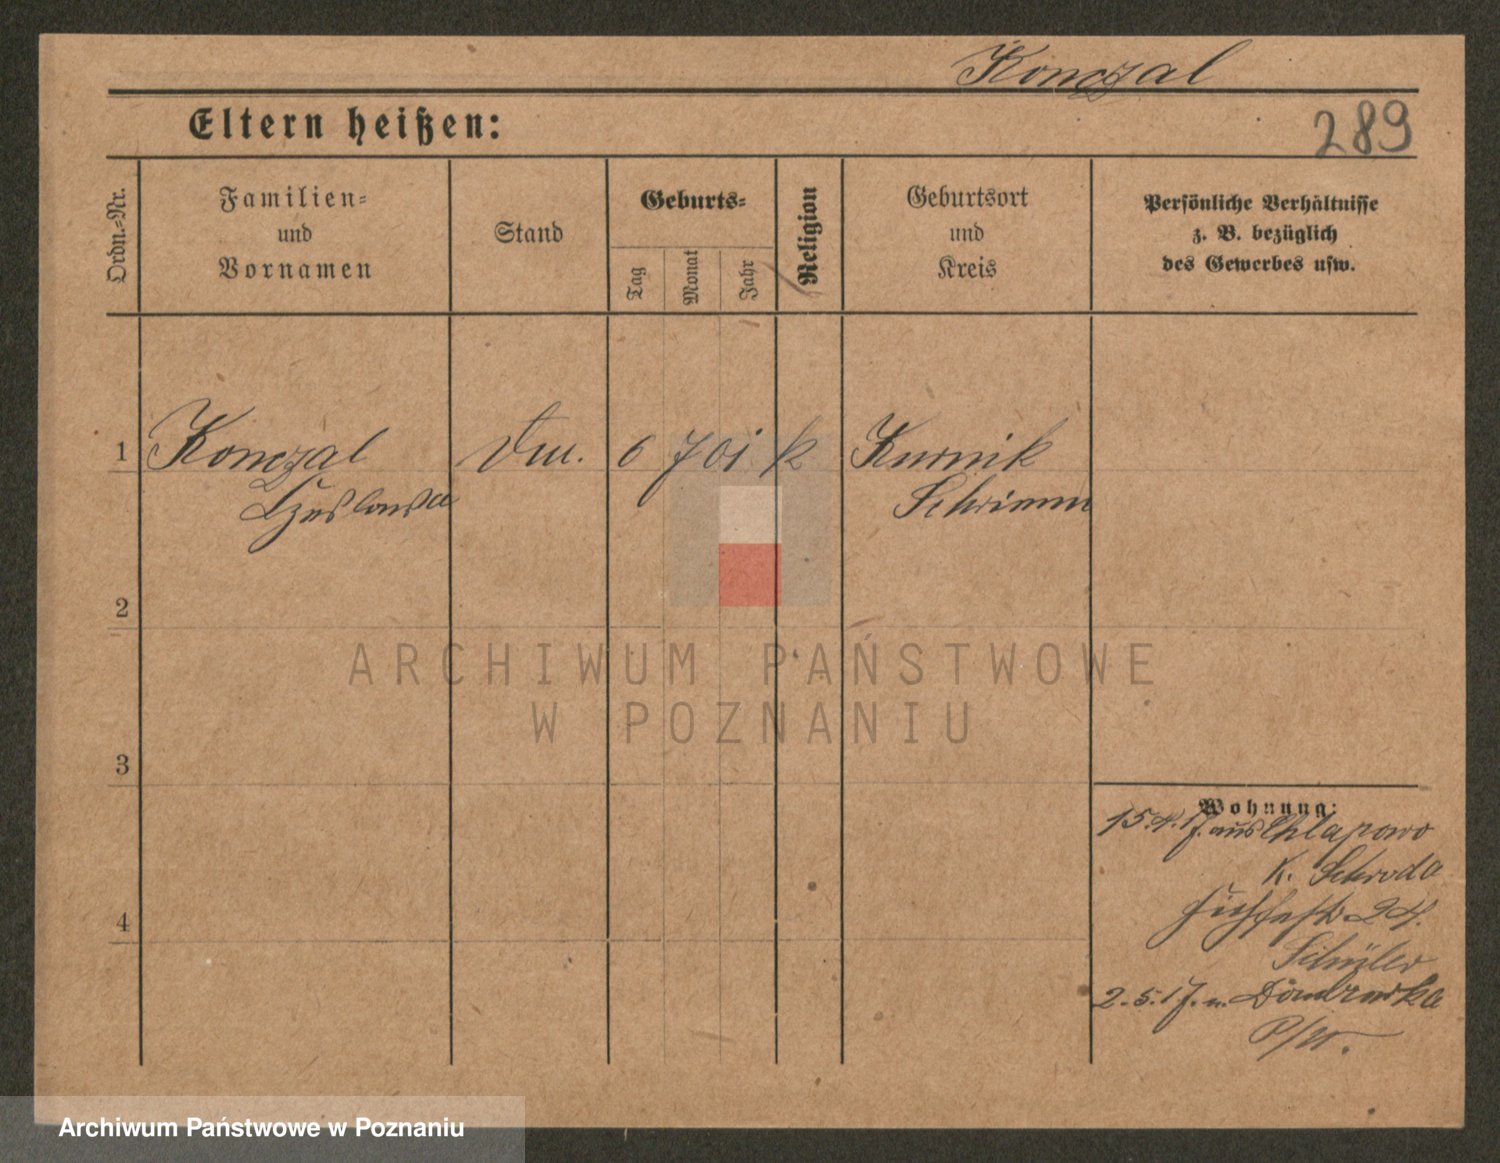 Konczal
Eltern heißen:
289
Ordn.-Nr.
Familien-
und
Vornamen
Stand
Geburts-
Tag
Monat
Jahr
Religion
Geburtsort
und
Kreis
Persönliche Verhältnisse
z. B. bezüglich
des Gewerbes usw.
1 Konczal 6 7 01 k Kurnik
Czeslawa Schrimm
2
ARCHIWUM PAŃSTWOWE
W POZNANIU
3
Wohnung:
15.4.17. aus Chlapowo
K. Schroda
4
24.
Schüler
2.5.17. n. Dombrowka
P/W.
Archiwum Państwowe w Poznaniu